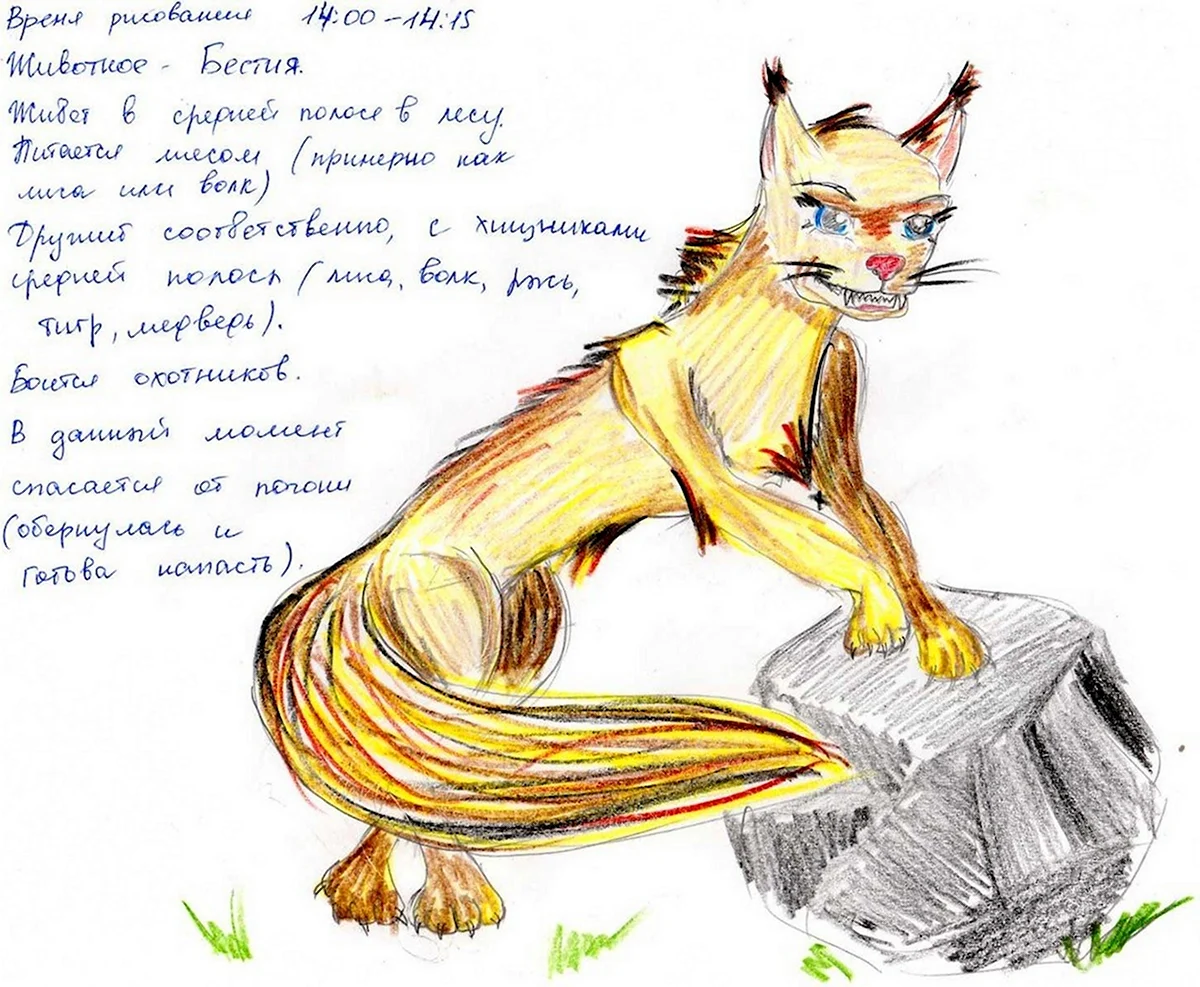 Время рисования 14:00-14:15
Животное - Бестия.
Живет в средней полосе в лесу.
Питается мясом (примерно как
лиса или волк)
Дружит соответственно, с хищниками
средней полосы (лиса, волк, рысь,
тигр, медведь).
Боится охотников.
В данный момент
спасается от погони
(обернулась и
готова напасть).